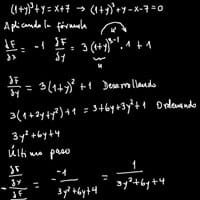 (1+y)³+y=x+7 → (1+y)³+y-x-7=0
Aplicando la fórmula
∂F/∂x = -1 ∂F/∂y = 3(1+y)³⁻¹·1+1
u'
u
∂F/∂y = 3(1+y)²+1 Desarrollando
3(1+2y+y²)+1 = 3+6y+3y²+1 Ordenando
3y²+6y+4
Último paso
-∂F/∂x / ∂F/∂y = - -1/3y²+6y+4 = 1/3y²+6y+4